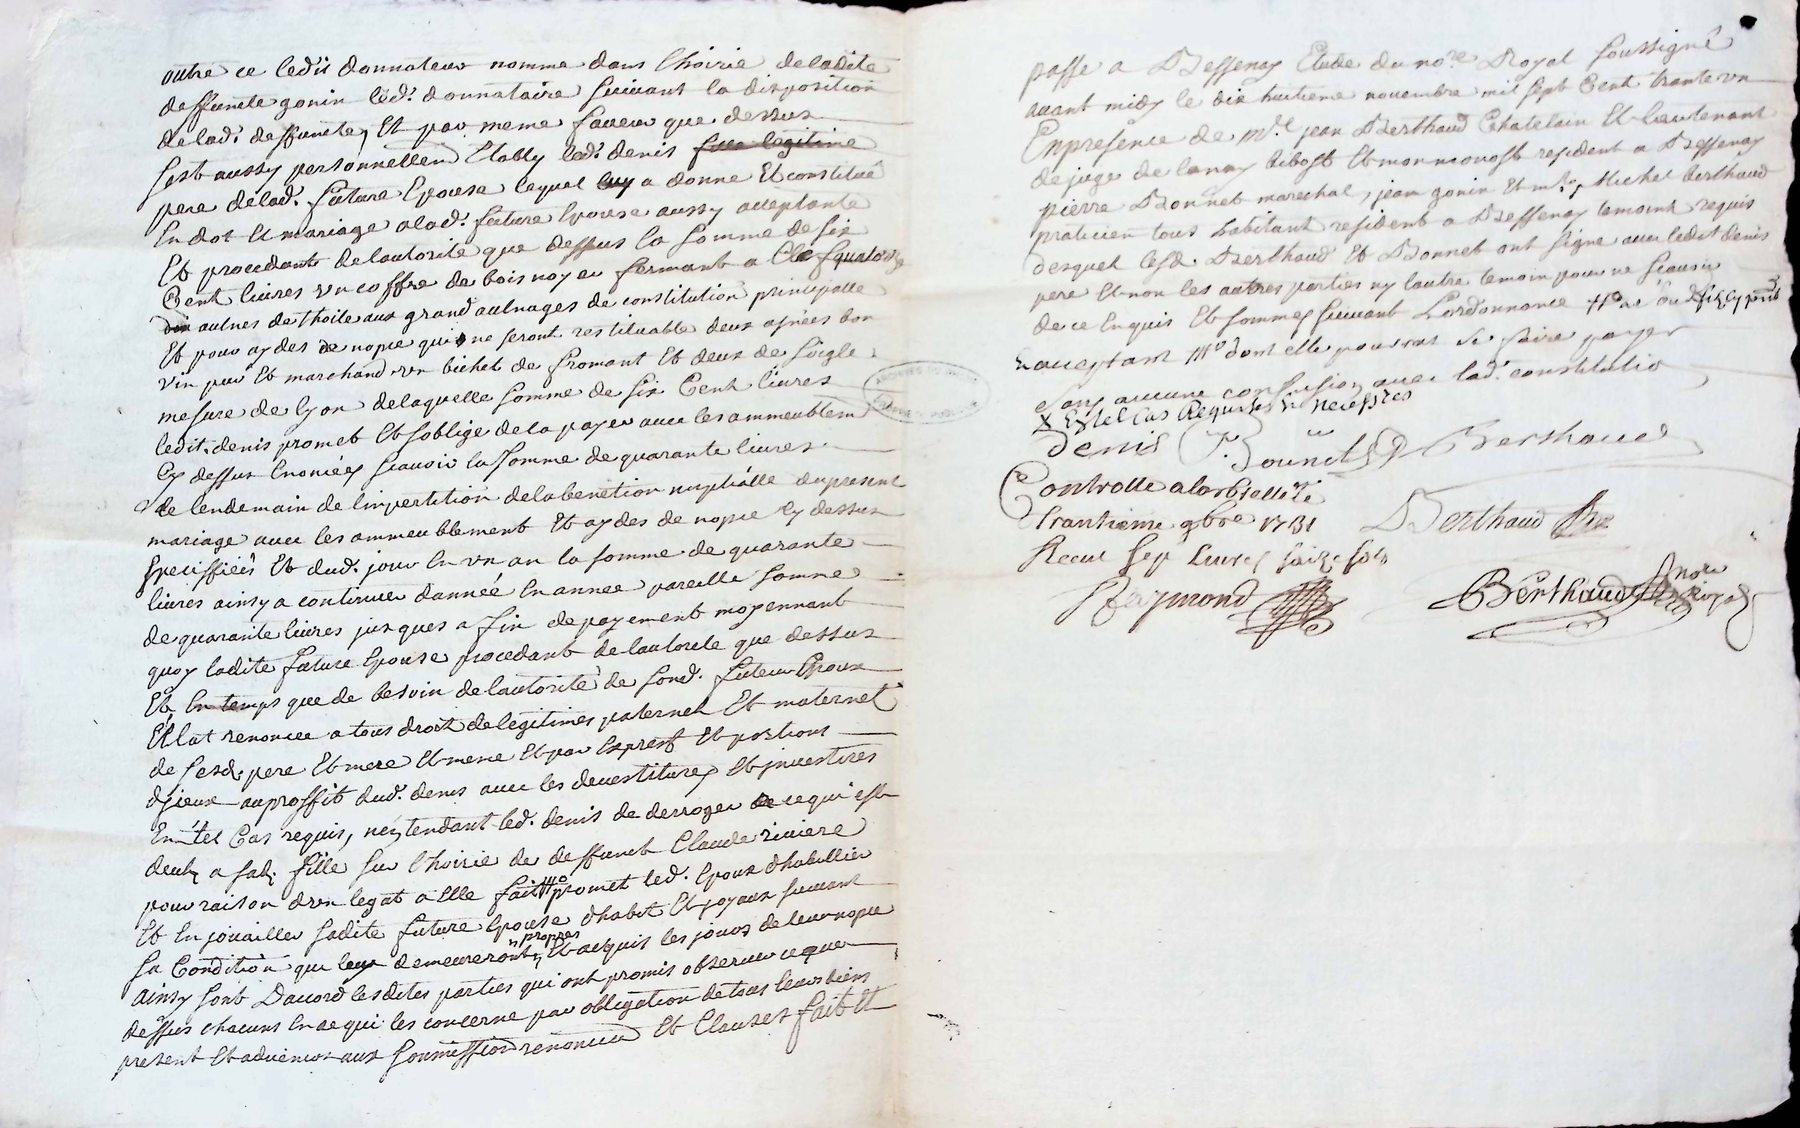 outre ce ledit donnateur nomme dans l'hoirie de ladite
deffuncte gonin led.t donnataire suivant la disposition
de lad.t deffuncte, Et par meme faveur que dessus
sest aussy personnellem Etably led.t denis fille legitime
pere delad.t future Epouse lequel luy a donné Et constitué
En dot Et mariage alad.t future Epouse aussy acceptante
Et procedante delautorité que dessus la somme de six
Cent livres un coffre de bois noyer fermant a Clef quatorze
dix aulnes de thoile aux grand aulnages de constitution principalle
Et pour aydes de nopce qui ne seront restituable deux asnées bon
vin pur Et marchand un bichet de froment Et deux de seigle
mesure de lyon delaquelle somme de six Cent livres
ledit denis promet Et soblige dela payer avec les ammeublem
Cy dessus Enoncées scavoir la somme de quarante livres
le lendemain de limpertition dela benetion nuptialle du present
mariage avec les ammeublement Et aydes de nopce Cy dessus
speciffiéés Et dud.t jour En un an la somme de quarante
livres ainsy a continuer dannéé En annee pareille somme
de quarante livres jusques a fin de payement moyennant
quoy ladite future Epouse procedant de lautorité que dessus
Et En temps que de besoin de lautorité de sond. futeur Epoux
Elle at renoncee a tous droit de legitimes paternel Et maternel
de sesd. pere Et mere Et meme Et par Expres Et portions
djceux au proffit dud.t denis avec les devestitures Et jnvestires
En tel Cas requis, nentendant led.t denis de derroger de ce qui est
deub a sad. fille sur l'hoirie de deffunct Claude riviere
pour raison d'un legat a Elle fait promet led.t Epoux d'habillier
Et En joüailler sadite future Epouse d'habit Et joyaux suivant
sa Condition qui leur demeureront propres Et acquis les jours de leur nopce
ainsy sont Daccord lesdites parties qui ont promis observer ce que
dessus chacuns En ce qui les concerne par obligation de tous leurs biens
present Et advenir aux soumission renoncia Et Clauses fait Et
passé a Bessenay Etude du no.re Royal soussigné
avant midy le dix huitieme novembre mil sept Cent trante un
En presence de M.e jean Berthaud Chatelain Et lieutenant
de juge de lanay ribost Et mon monost resident a Bessenay
pierre Bonnet marechal, jean gonin Et m.e Michel Berthaud
praticien tous habitant resident a Bessenay temoins requis
desquels lesd. Berthaud Et Bonnet ont signé avec ledit denis
pere Et non les autres parties ny lautre temoin pour ne scavoir
de ce Enquis Et sommes suivant Lordonnance
acceptant dont elle pourrat se faire payer
sans aucune confusion avec lad.t constitutio
X En tel Cas Requises necessres
denis P. Bounet Berthaud
Controllé a larbresle le
trantieme 9bre 1731 Berthaud
Recue sep Livres saize sols
Raymond Berthaud no.re Royal